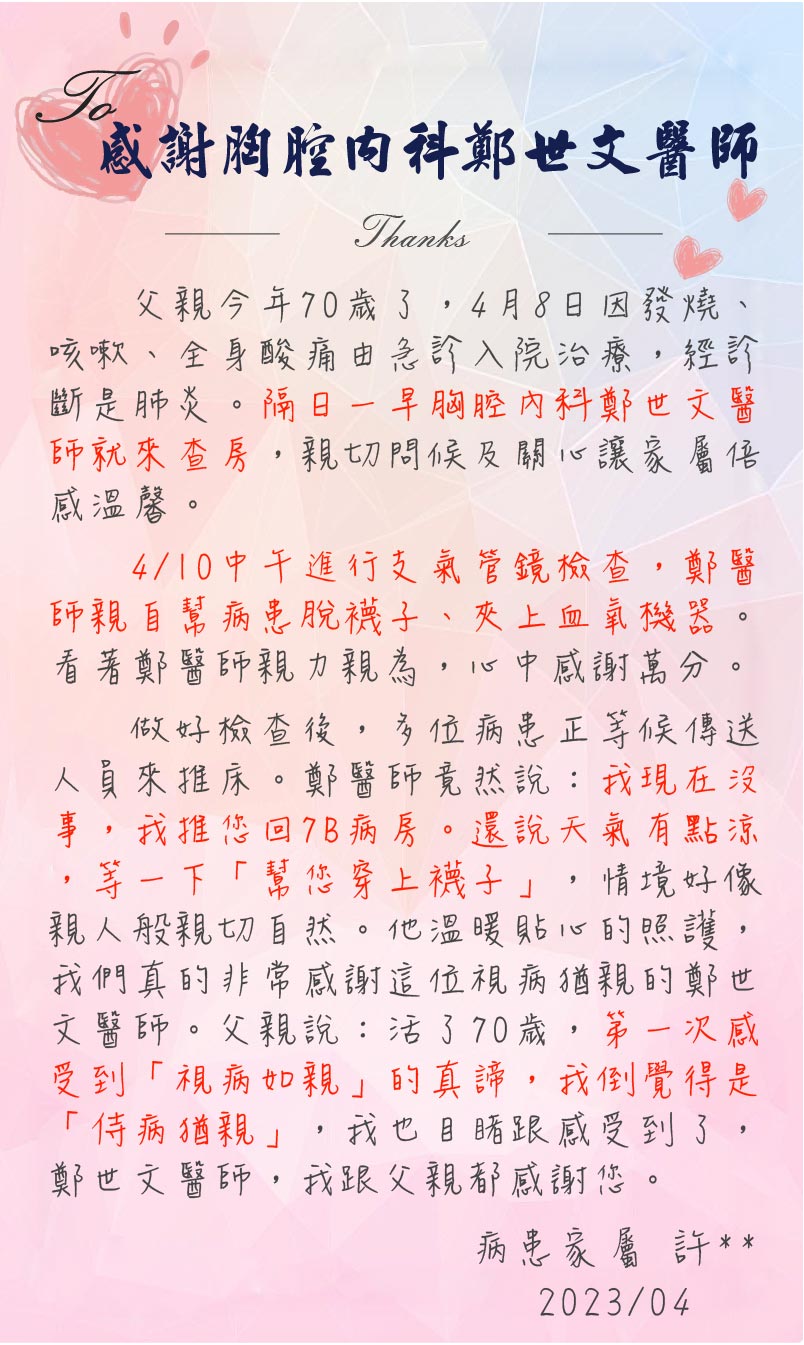 To
感謝胸腔內科鄭世文醫師
Thanks
父親今年70歲了，4月8日因發燒、
咳嗽、全身酸痛由急診入院治療，經診
斷是肺炎。隔日一早胸腔內科鄭世文醫
師就來查房，親切問候及關心讓家屬倍
感溫馨。
4/10中午進行支氣管鏡檢查，鄭醫
師親自幫病患脫襪子、夾上血氧機器。
看著鄭醫師親力親為，心中感謝萬分。
做好檢查後，多位病患正等候傳送
人員來推床。鄭醫師竟然說：我現在沒
事，我推您回7B病房。還說天氣有點涼
，等一下「幫您穿上襪子」，情境好像
親人般親切自然。他溫暖貼心的照護，
我們真的非常感謝這位視病猶親的鄭世
文醫師。父親說：活了70歲，第一次感
受到「視病如親」的真諦，我倒覺得是
「侍病猶親」，我也目睹跟感受到了，
鄭世文醫師，我跟父親都感謝您。
病患家屬 許**
2023/04